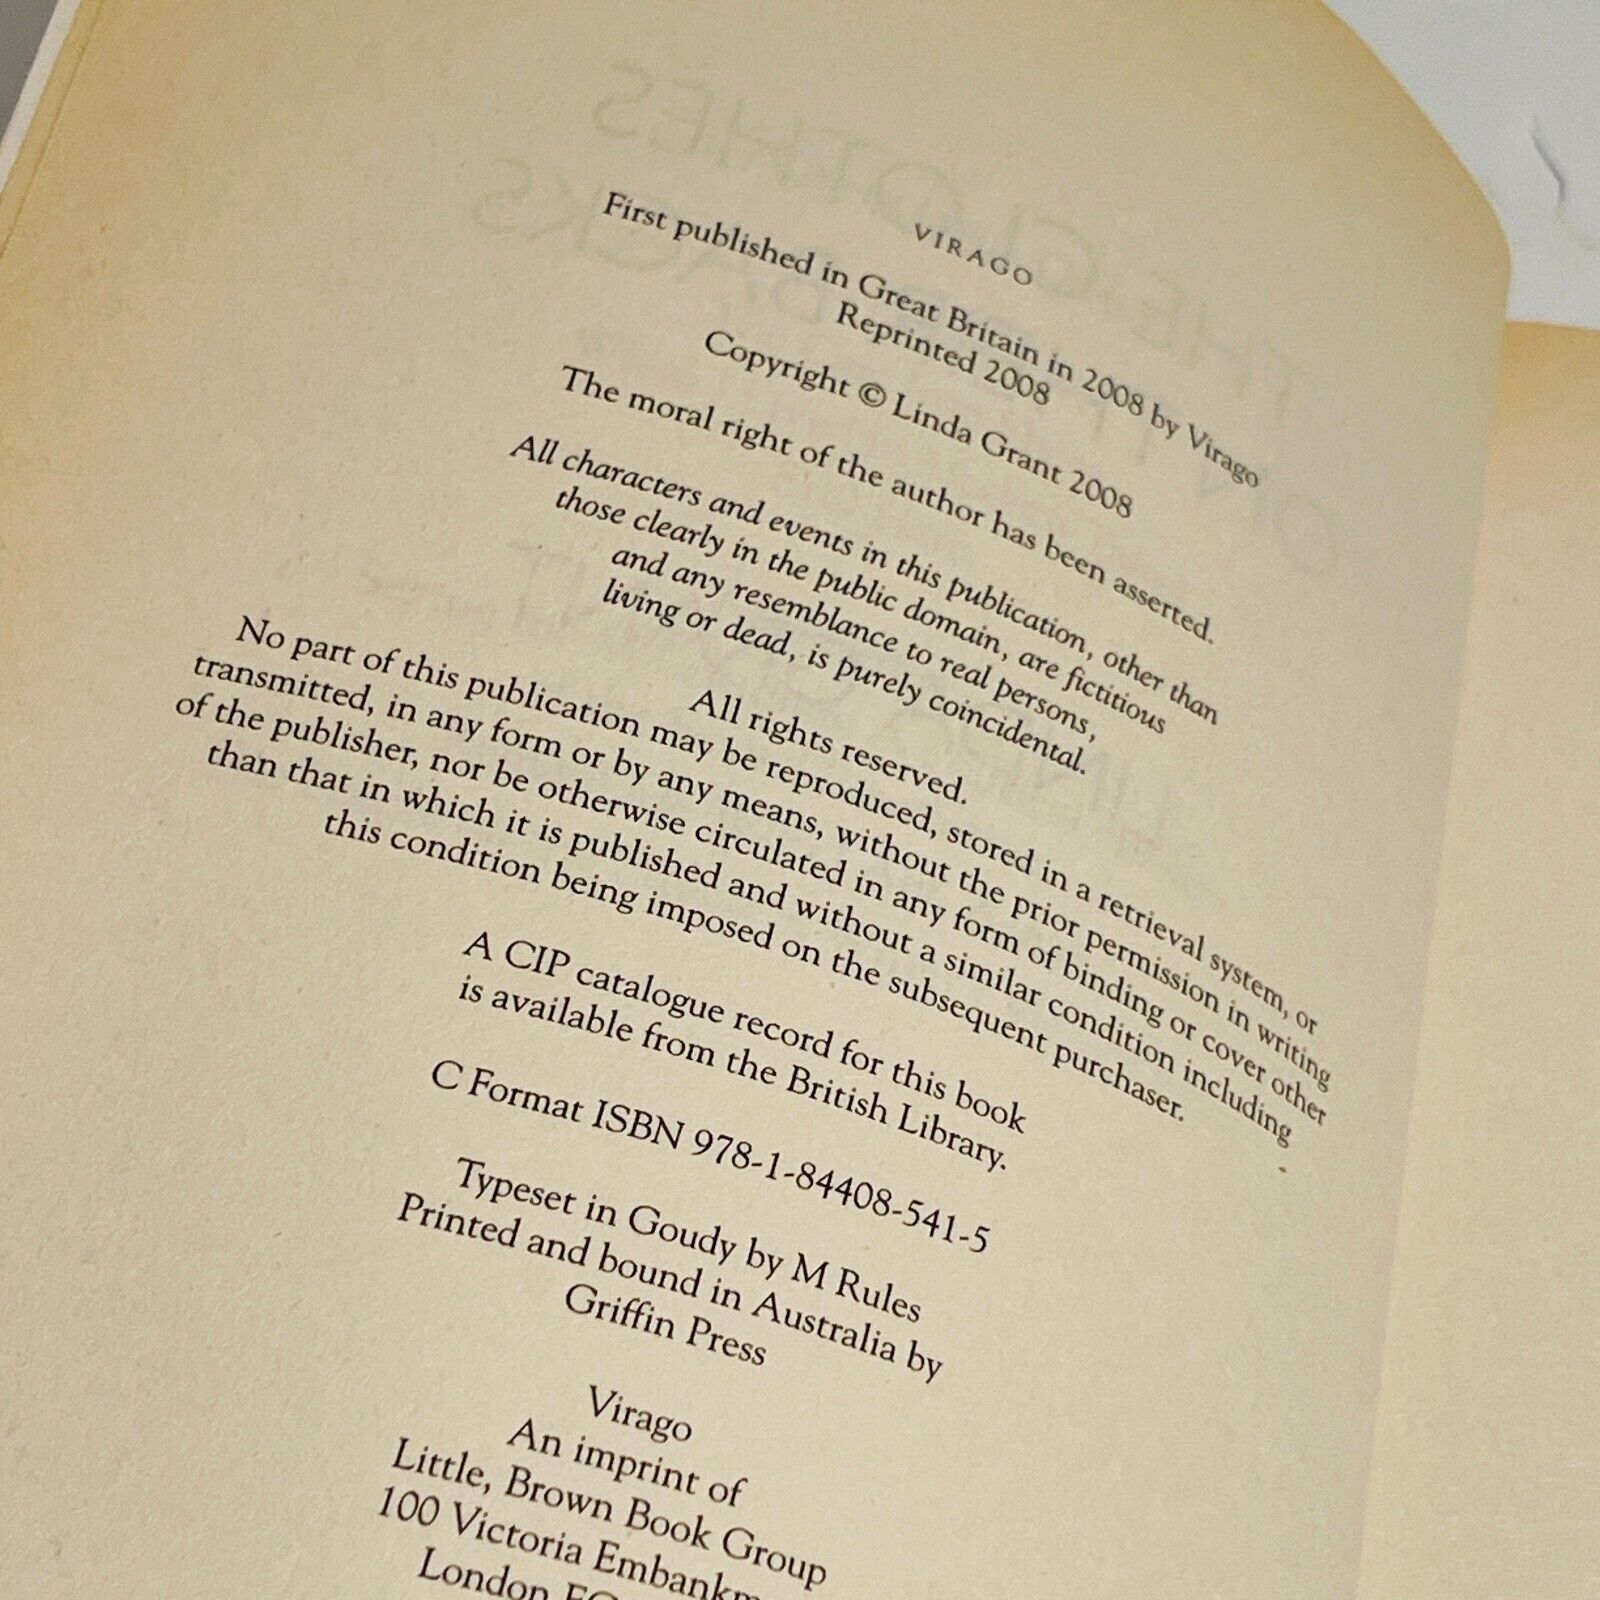 VIRAGO
First published in Great Britain in 2008 by Virago
Reprinted 2008
Copyright © Linda Grant 2008
The moral right of the author has been asserted.
All characters and events in this publication, other than
those clearly in the public domain, are fictitious
and any resemblance to real persons,
living or dead, is purely coincidental.
All rights reserved.
No part of this publication may be reproduced, stored in a retrieval system, or
transmitted, in any form or by any means, without the prior permission in writing
of the publisher, nor be otherwise circulated in any form of binding or cover other
than that in which it is published and without a similar condition including
this condition being imposed on the subsequent purchaser.
A CIP catalogue record for this book
is available from the British Library.
C Format ISBN 978-1-84408-541-5
Typeset in Goudy by M Rules
Printed and bound in Australia by
Griffin Press
Virago
An imprint of
Little, Brown Book Group
100 Victoria
London